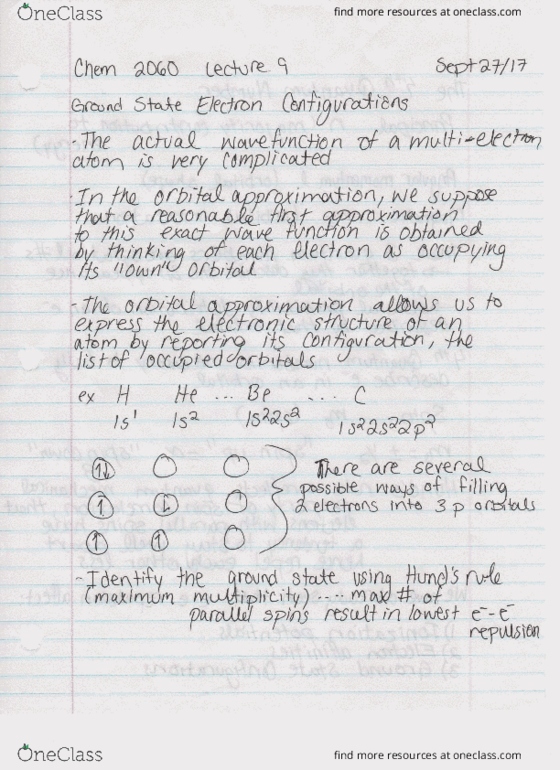 OneClass
find more resources at oneclass.com
Chem 2060 Lecture 9 Sept 27/17
Ground State Electron Configurations
- The actual wavefunction of a multi-electron
atom is very complicated
- In the orbital approximation, we suppose
that a reasonable first approximation
to this exact wave function is obtained
by thinking of each electron as occupying
its "own" orbital
- The orbital approximation allows us to
express the electronic structure of an
atom by reporting its configuration, the
list of occupied orbitals
ex H He ... Be .... C
1s¹ 1s² 1s²2s² 1s²2s²2p²
There are several
possible ways of filling
2 electrons into 3 p orbitals
- Identify the ground state using Hund's rule
(maximum multiplicity) .... max # of
parallel spins result in lowest e⁻-e⁻
repulsion
OneClass
find more resources at oneclass.com